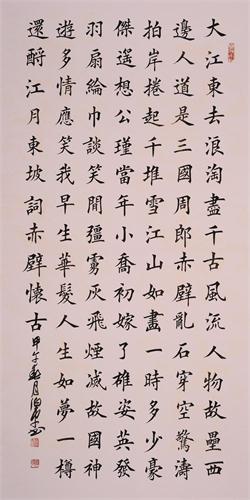 大江東去浪淘盡千古風流人物故壘西
邊人道是三國周郎赤壁亂石穿空驚濤
拍岸捲起千堆雪江山如畫一時多少豪
傑遙想公瑾當年小喬初嫁了雄姿英發
羽扇綸巾談笑間彊虜灰飛煙滅故國神
遊多情應笑我早生華髮人生如夢一樽
還酹江月東坡詞赤壁懷古
甲午